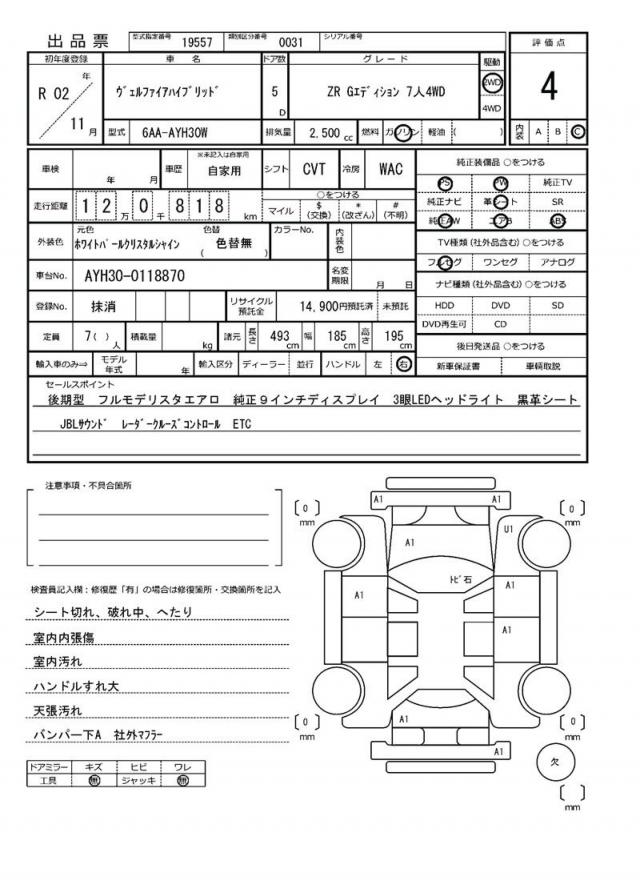 出品票
型式指定番号 19557 類別区分番号 0031 シリアル番号
評価点
初年度登録 車名 ドア数 グレード 駆動
R 02 年 11 月
ヴェルファイアハイブリッド 5 D ZR Gエディション 7人4WD 2WD 4WD
4
型式 6AA-AYH30W 排気量 2,500 cc 燃料 ガソリン 軽油 ( )
内装 A B C
車検 年 月 車歴 ※未記入は自家用 自家用 シフト CVT 冷房 WAC
走行距離 1 2 万 0 千 8 1 8 km
○をつける
マイル $ (交換) * (改ざん) # (不明)
外装色 元色 ホワイトパールクリスタルシャイン 色替 ( 色替無 ) カラーNo. 内装色
車台No. AYH30-0118870 名変期限 月 日
登録No. 抹消 リサイクル預託金 14,900円預託済 未預託
定員 7( )人 積載量 kg 諸元 長さ 493 cm 幅 185 cm 高さ 195 cm
輸入車のみ⇒ モデル年式 年 輸入区分 ディーラー 並行 ハンドル 左 右
純正装備品 ○をつける
PS PW 純正TV
純正ナビ 革シート SR
純正AW エアB ABS
TV種類(社外品含む) ○をつける
フルセグ ワンセグ アナログ
ナビ種類(社外品含む) ○をつける
HDD DVD SD
DVD再生可 CD
後日発送品 ○をつける
新車保証書 車輌取説
セールスポイント
後期型 フルモデリスタエアロ 純正9インチディスプレイ 3眼LEDヘッドライト 黒革シート
JBLサウンド レーダークルーズコントロール ETC
注意事項・不具合箇所
検査員記入欄:修復歴「有」の場合は修復箇所・交換箇所を記入
シート切れ、破れ中、へたり
室内内張傷
室内汚れ
ハンドルすれ大
天張汚れ
バンパー下A 社外マフラー
ドアミラー キズ ヒビ ワレ
工具 無 ジャッキ 無
A1 A1
[ 0 ] mm
[ 0 ] mm
A1
U1
トビ石
A1
A1
A1
A1
[ 0 ] mm
[ 0 ] mm
A1
欠
[ ] mm